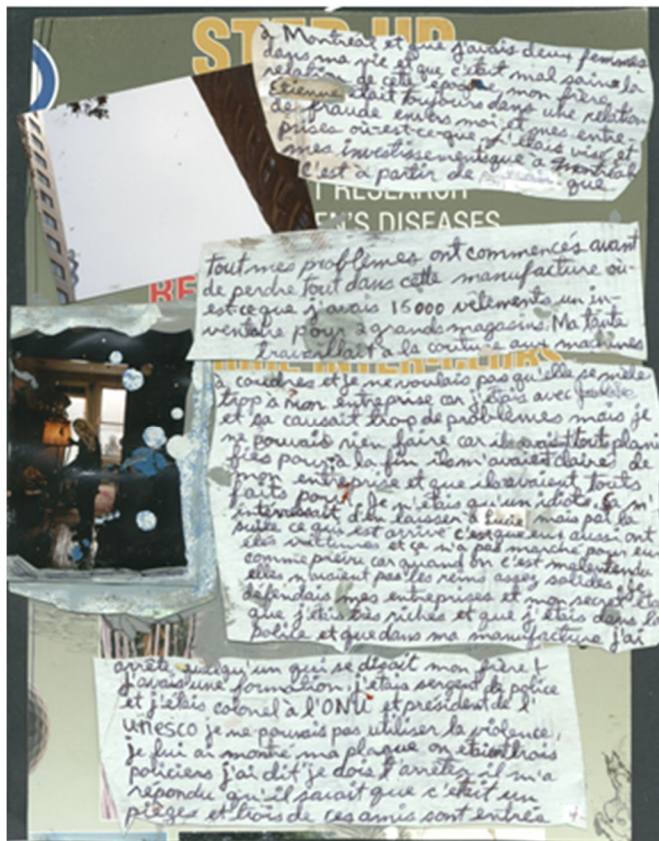 STEP UP
à Montréal et que j'avais deux femmes
dans ma vie et que c'était mal saine la
relation de cette époque, mon frère
Etienne était toujours dans une relation
de fraude envers moi et mes entre-
prises où-est-ce-que j'étais visé et
mes investissements que à Montréal
c'est à partir de que
T RESEARCH
EN'S DISEASES
tout mes problèmes ont commencés avant
de perdre tout dans cette manufacture où-
est-ce que j'avais 15000 vêtements un in-
ventaire pour 2 grands magasins. Ma tante
travaillait à la couture aux machines
à coudres et je ne voulais pas qu'elle se mèle
tropp à mon entreprise car j'étais avec
et sa causait trop de problèmes mais je
ne pouvais rien faire car ils avait touts plani-
fiés pour à la fin ils m'avaient claires de
mon entreprise et que ils avaient touts
faits pour je n'étais qu'un idiots,
interressait d'en laisser à Lucie mais par la
suite ce qui est arrivé c'est que eux aussi ont
étés victimes et ça n'a pas marché pour eux
comme prévu car quand on c'est malentendu
elles n'usient pas les reins assez solides, je
défendais mes entreprises et mon secret
que j'étais très riches et que j'étais dans la
police et que dans ma manufacture j'ai
arrêté quelqu'un qui se disait mon frère!
j'avais une formation, j'étais sergent de police
et j'étais colonel à l'ONU et président de l'
UNESCO je ne pouvais pas utiliser la violence,
je lui ai montré ma plaque on etient trois
policiers j'ai dit je dois l'arrêtez, il m'a
répondu qu'il savait que c'était un
pièges et trois de ces amis sont entrés